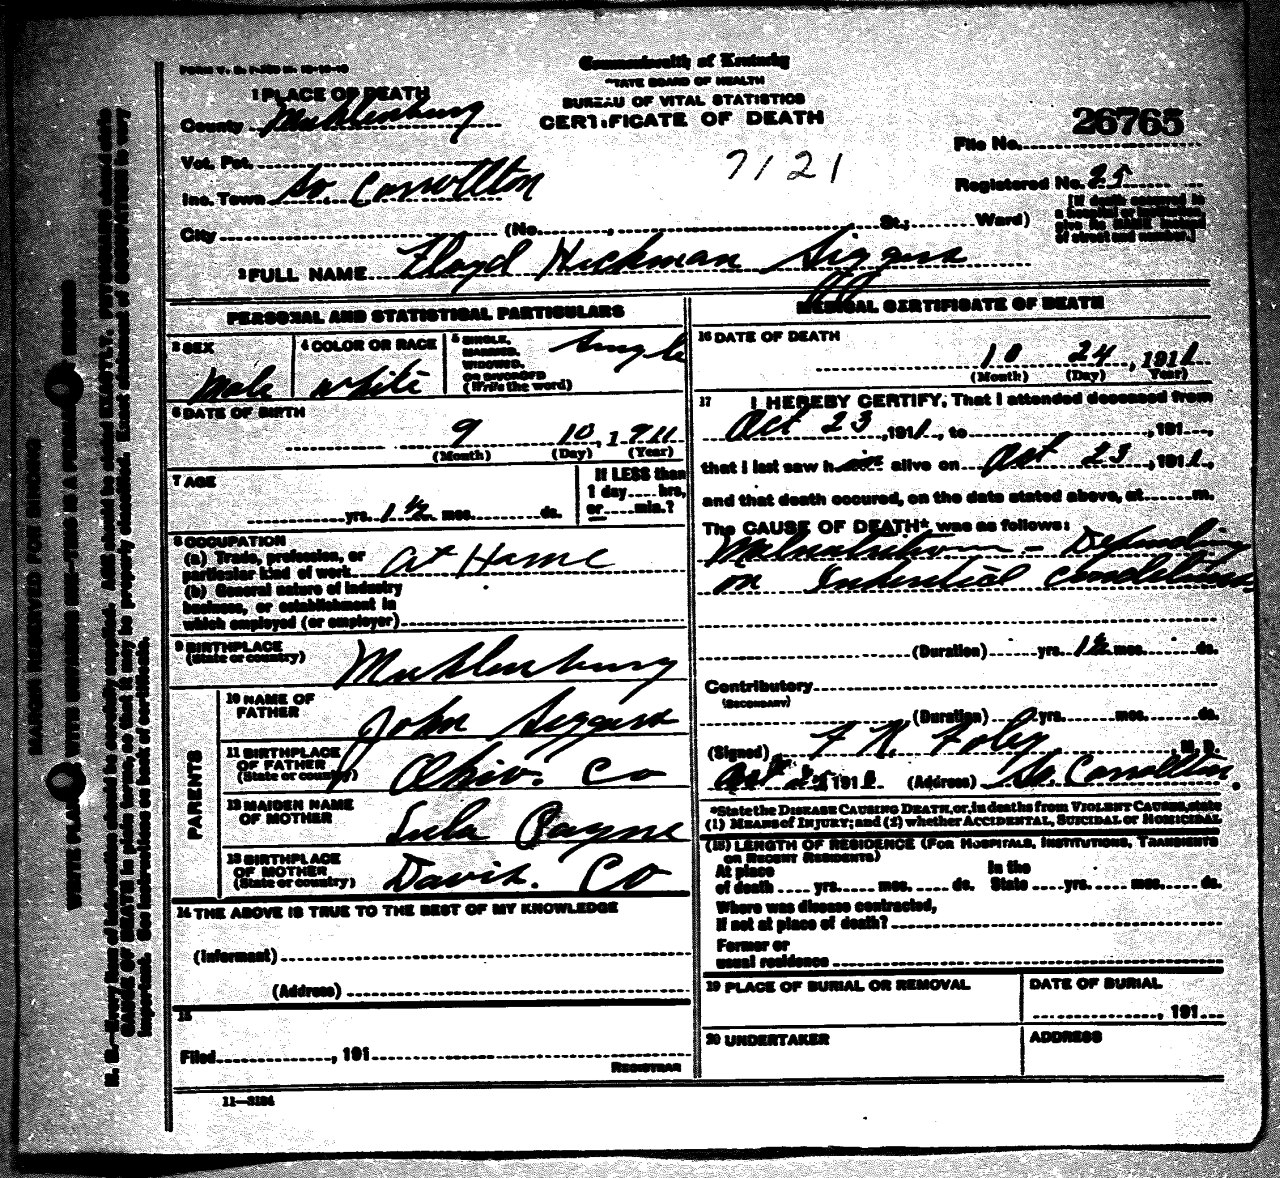 FORM V. S.
Commonwealth of Kentucky
STATE BOARD OF HEALTH
BUREAU OF VITAL STATISTICS
CERTIFICATE OF DEATH
1 PLACE OF DEATH
County Muhlenburg
Vot. Pct.
Inc. Town So. Carrollton
City (No. , St.; Ward)
7121
26765
File No.
Registered No. 25
[If death occurred in
a hospital or institution
give its NAME instead
of street and number.]
2 FULL NAME Floyd Hickman Siggers
PERSONAL AND STATISTICAL PARTICULARS
3 SEX
Male
4 COLOR OR RACE
white
5 SINGLE,
MARRIED,
WIDOWED,
OR DIVORCED
(Write the word)
Single
6 DATE OF BIRTH
9 10, 1911
(Month) (Day) (Year)
7 AGE
yrs. 1½ mos. ds.
If LESS than
1 day hrs.
or min.?
8 OCCUPATION
(a) Trade, profession, or
particular kind of work At Home
(b) General nature of industry
business, or establishment in
which employed (or employer)
9 BIRTHPLACE
(State or country)
Muhlenburg
PARENTS
10 NAME OF
FATHER
John Siggers
11 BIRTHPLACE
OF FATHER
(State or country)
Ohio. Co
12 MAIDEN NAME
OF MOTHER
Lula Payne
13 BIRTHPLACE
OF MOTHER
(State or country)
Davis. Co
14 THE ABOVE IS TRUE TO THE BEST OF MY KNOWLEDGE
(Informant)
(Address)
15
Filed , 191
REGISTRAR
11—3184
MEDICAL CERTIFICATE OF DEATH
16 DATE OF DEATH
10 24, 1911
(Month) (Day) Year)
17 I HEREBY CERTIFY, That I attended deceased from
Oct 23, 1911, to , 191 ,
that I last saw him alive on Oct 23, 1911,
and that death occured, on the date stated above, at m.
The CAUSE OF DEATH* was as follows:
Malnutrition - Depending
on Intestinal conditions
(Duration) yrs. 1½ mos. ds.
Contributory
(SECONDARY)
(Duration) yrs. mos. ds.
(Signed) F. R. Foley, M. D.
Oct 191 (Address) So Carrollton.
*State the DISEASE CAUSING DEATH, or, in deaths from VIOLENT CAUSES, state
(1) MEANS of INJURY; and (2) whether ACCIDENTAL, SUICIDAL or HOMICIDAL
(18) LENGTH OF RESIDENCE (FOR HOSPITALS, INSTITUTIONS, TRANSIENTS
OR RECENT RESIDENTS)
At place In the
of death yrs. mos. ds. State yrs. mos. ds.
Where was disease contracted,
if not at place of death?
Former or
usual residence
19 PLACE OF BURIAL OR REMOVAL
DATE OF BURIAL
, 191
20 UNDERTAKER
ADDRESS
MARGIN RESERVED FOR BINDING
WRITE PLAINLY WITH UNFADING INK—THIS IS A PERMANENT RECORD
N. B.—Every item of information should be carefully supplied. AGE should be stated EXACTLY. PHYSICIANS should state
CAUSE OF DEATH in plain terms, so that it may be properly classified. Exact statement of OCCUPATION is very
important. See instructions on back of certificate.